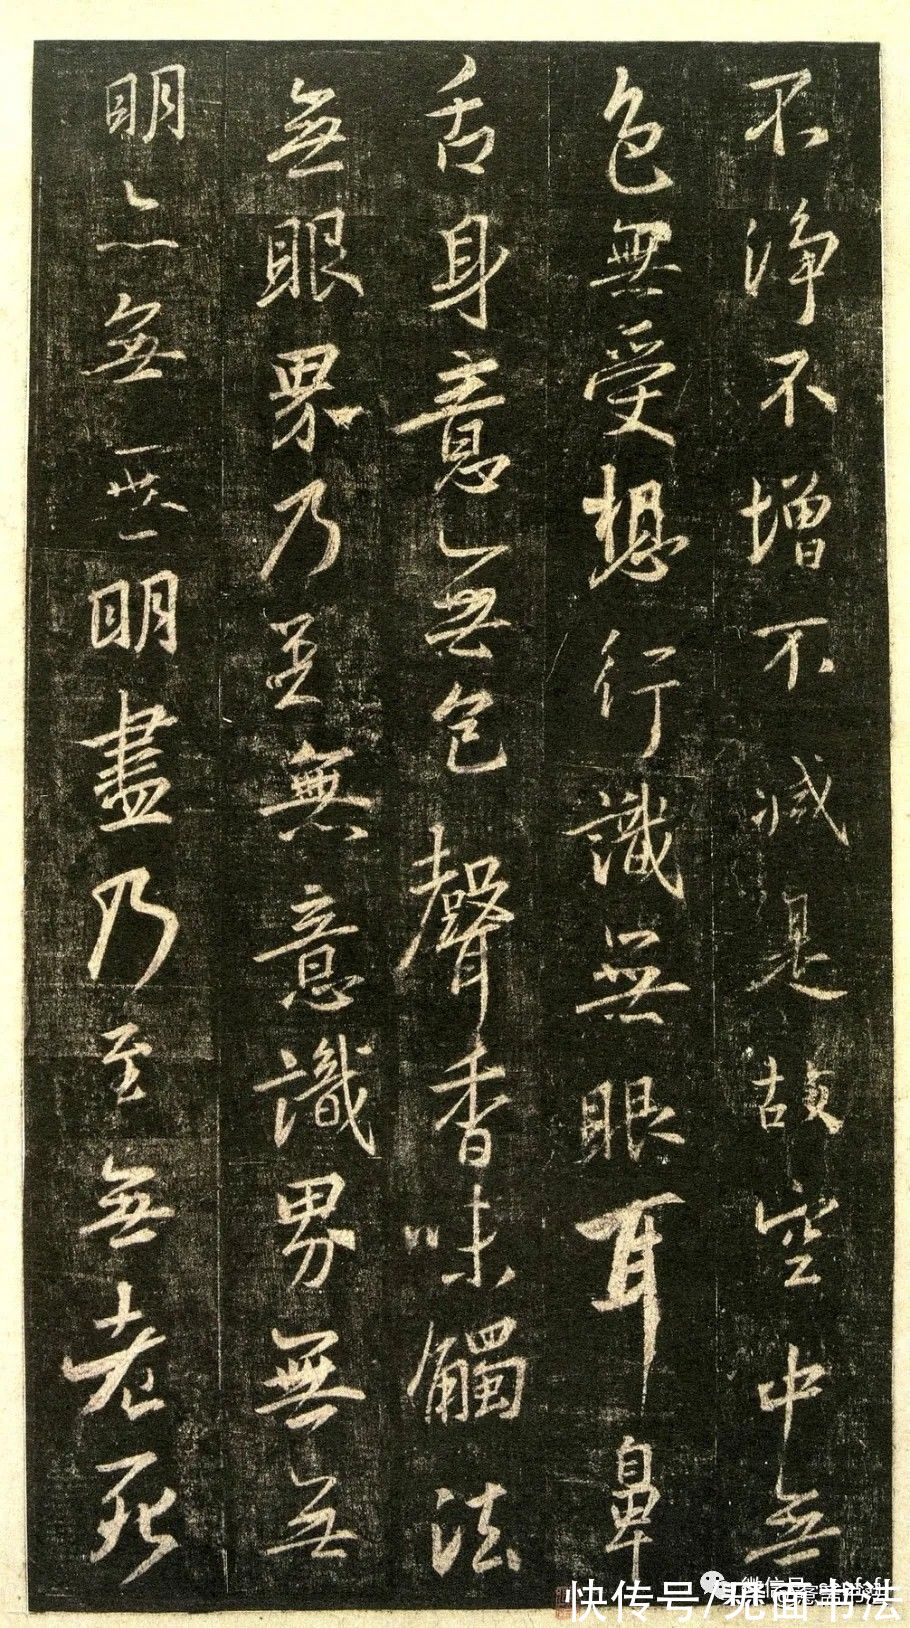 不淨不增不減是故空中無
色無受想行識無眼耳鼻
舌身意無色聲香味觸法
無眼界乃至無意識界無無
明亦無無明盡乃至無老死
快传号/见面书法
微信号